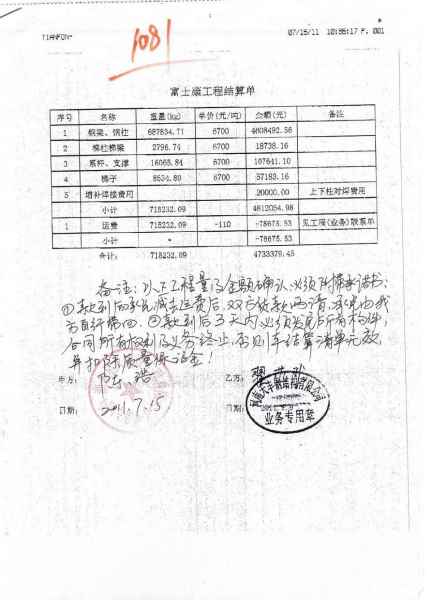 TIANFON-
07/15/11 10:55:17 P. 001
1081
富士康工程结算单
序号 名称 重量(kg) 单价(元/吨) 金额(元) 备注
1 钢梁、钢柱 687834.71 6700 4608492.56
2 梯柱梯梁 2796.74 6700 18738.16
3 系杆、支撑 16065.84 6700 107641.10
4 梯子 8534.80 6700 57183.16
5 增补焊接费用 20000.00 上下柱对焊费用
小计 715232.09 4812054.98
1 运费 715232.09 -110 -78675.53 见工程(业务)联系单
小计 -78675.53
合计: 715232.09 4733379.45
备注:以上工程量及金额确认必须附带承诺书:
①款到后承兑减去运费后,双方货款两清,承兑由我
方自行带回。②款到后三天内必须发完所有构件,
合同所有权利及义务终止,否则本结算清单无效,
并扣除质量保证金!
甲方: 陆浩
乙方:
日期: 2011.7.15
日期:
河南天丰钢结构有限公司
业务专用章